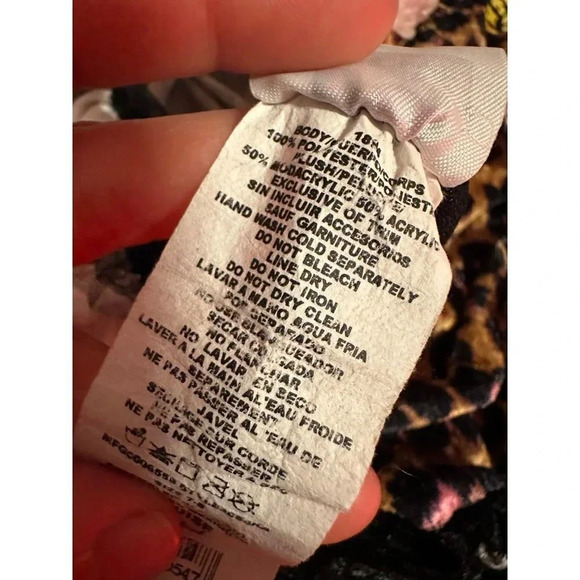 18M
BODY/CUERPO/CORPS
100% POLYESTER/POLIESTER
PLUSH/
50% MODACRYLIC 50% ACRYLIC
EXCLUSIVE OF TRIM
SIN INCLUIR ACCESORIOS
SAUF GARNITURE
HAND WASH COLD SEPARATELY
DO NOT BLEACH
LINE DRY
DO NOT IRON
DO NOT DRY CLEAN
LAVAR A MANO, AGUA FRIA
POR SEPARADO
NO USE BLANQUEADOR
SECAR COLGADA
NO PLANCHAR
NO LAVAR EN SECO
LAVER A LA MAIN
SEPAREMENT A L'EAU FROIDE
NE PAS PASSER AL 'EAU DE
JAVEL
SECHAGE SUR CORDE
NE PAS REPASSER
NE PAS NETTOYER A SEC
0547